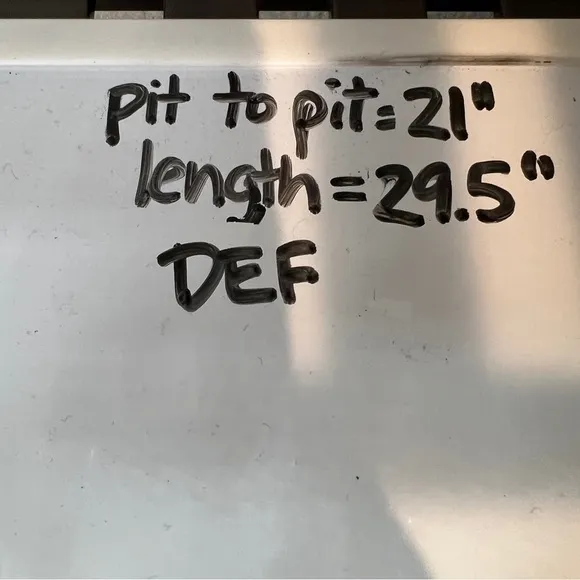 pit to pit = 21"
length = 29.5"
DEF